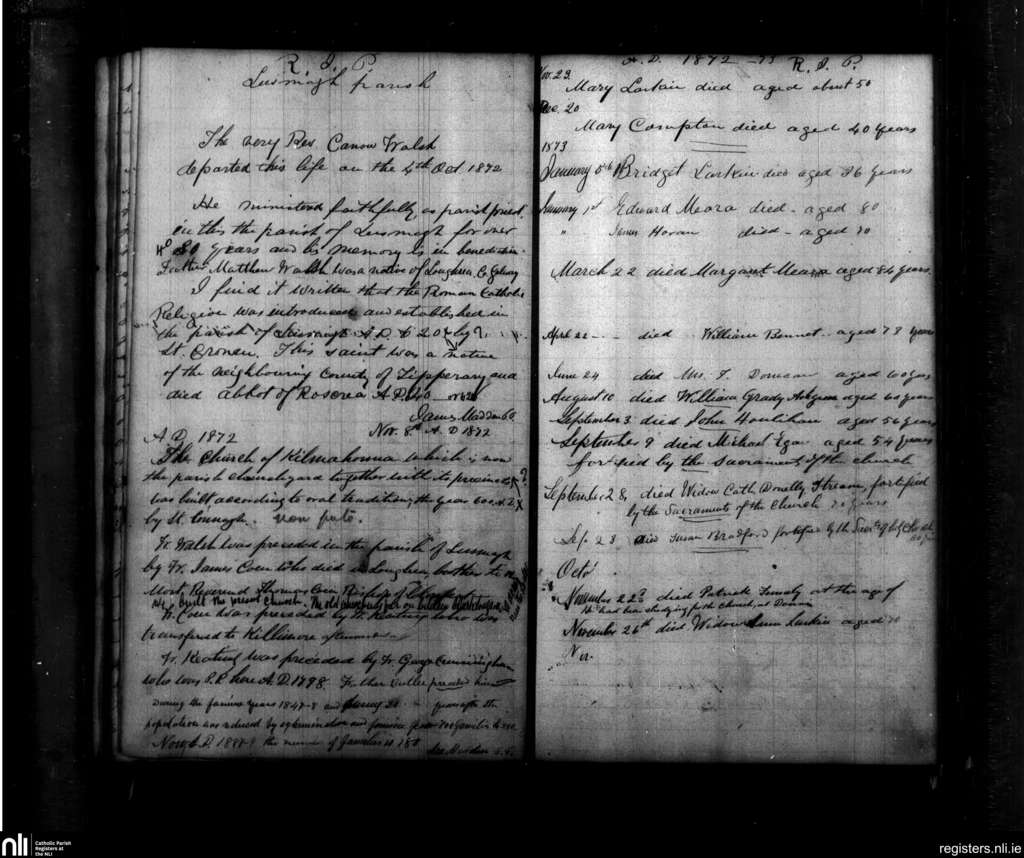 R. I. P.
Lusmagh parish
The very Rev Canon Walsh
departed this life on the 4th Oct 1872
He ministered faithfully as parish priest
in this the parish of Lusmagh for over
40 years and his memory is in benediction
Father Matthew Walsh was a native of Loughrea Co Galway
I find it written that the Roman Catholic
Religion was introduced and established in
the parish of Lusmagh A.D. 620 by ?
St. Cronan. This saint was a native
of the neighbouring County of Tipperary and
died abbot of Roscrea A.D. 640
James Madden
Nov. 8th A. D 1872
A D. 1872
The Church of Kilmahonna which is now
the parish churchyard together with its precincts
was built according to oral tradition, the year 600. A.D. ?
by St. non puto.
Fr Walsh was preceded in the parish of Lusmagh
by Fr. James Coen who died in Loughrea, brother to the
Most Reverend Thomas Coen Bishop of Clonfert
built the present Church. The old
Fr Coen was preceded by Fr Keating who was
transferred to Killimore afterwards
Fr. Keating was preceded by Fr George Cunningham
who was P.P. here A.D. 1798. Father preceded him
During the famine years 1847-8 and years after the
population was reduced by extermination and famine from 700 families to
Now A.D. the number of families is 180
A. D. 1872-73 R. I. P.
Nov. 23
Mary Larkin died aged about 50
Dec. 20
Mary Compton died aged 40 years
1873
January 5th Bridget Larkin died aged 36 years
January 1st Edward Meara died - aged 80
" James Horan died - aged 70
March 22 died Margaret Meara aged 84 years
April 22 - died William Bennet - aged 73 years
June 24 died Mrs. T. aged 60 years
August 10 died William Grady aged 60 years
September 3 died John Hourihan aged 56 years
September 9 died Michael Egan aged 54 years
fortified by the Sacraments of the church
September 28, died Widow Cath. Donelly Stream, fortified
by the Sacraments of the Church 70 years
Sep. 28 died Susan Bradford fortified by the Sacrts of the Church
Octo
November 22d died Patrick at the age of
He had been studying for the church, at
November 26th died Widow Larkin aged 70
Nov
nli
Catholic Parish
Registers at
the NLI
registers.nli.ie